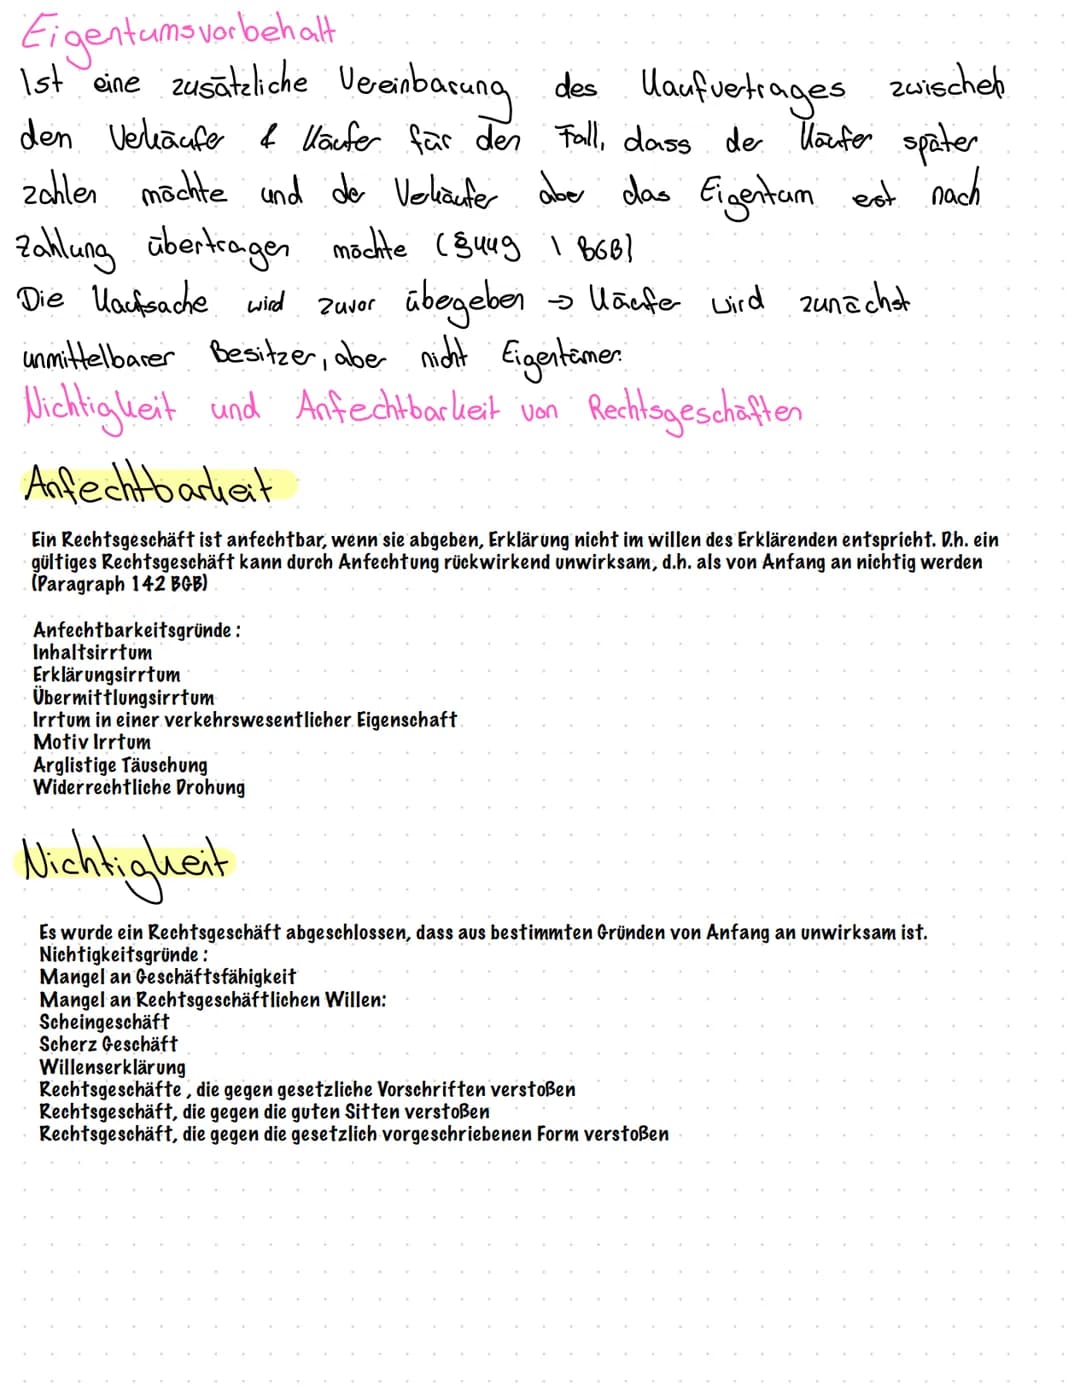 Eigentumsvorbehalt
Ist eine zusätzliche Vereinbarung des Kaufvertrages zwischen
den Verkäufer & Käufer für den Fall, dass der Käufer später
zahlen möchte und der Verkäufer aber das Eigentum erst nach
Zahlung übertragen möchte (§449 1 BGB)
Die Kaufsache wird zuvor übegeben → Käufer wird zunächst
unmittelbarer Besitzer, aber nicht Eigentümer.
Nichtigkeit und Anfechtbarkeit von Rechtsgeschäften
Anfechtbarkeit
Ein Rechtsgeschäft ist anfechtbar, wenn sie abgeben, Erklärung nicht im willen des Erklärenden entspricht. D.h. ein
gültiges Rechtsgeschäft kann durch Anfechtung rückwirkend unwirksam, d.h. als von Anfang an nichtig werden
(Paragraph 142 BGB)
Anfechtbarkeitsgründe :
Inhaltsirrtum
Erklärungsirrtum
Übermittlungsirrtum
Irrtum in einer verkehrswesentlicher Eigenschaft
Motiv Irrtum
Arglistige Täuschung
Widerrechtliche Drohung
Nichtigkeit
Es wurde ein Rechtsgeschäft abgeschlossen, dass aus bestimmten Gründen von Anfang an unwirksam ist.
Nichtigkeitsgründe :
Mangel an Geschäftsfähigkeit
Mangel an Rechtsgeschäftlichen Willen:
Scheingeschäft
Scherz Geschäft
Willenserklärung
Rechtsgeschäfte , die gegen gesetzliche Vorschriften verstoßen
Rechtsgeschäft, die gegen die guten Sitten verstoßen
Rechtsgeschäft, die gegen die gesetzlich vorgeschriebenen Form verstoßen